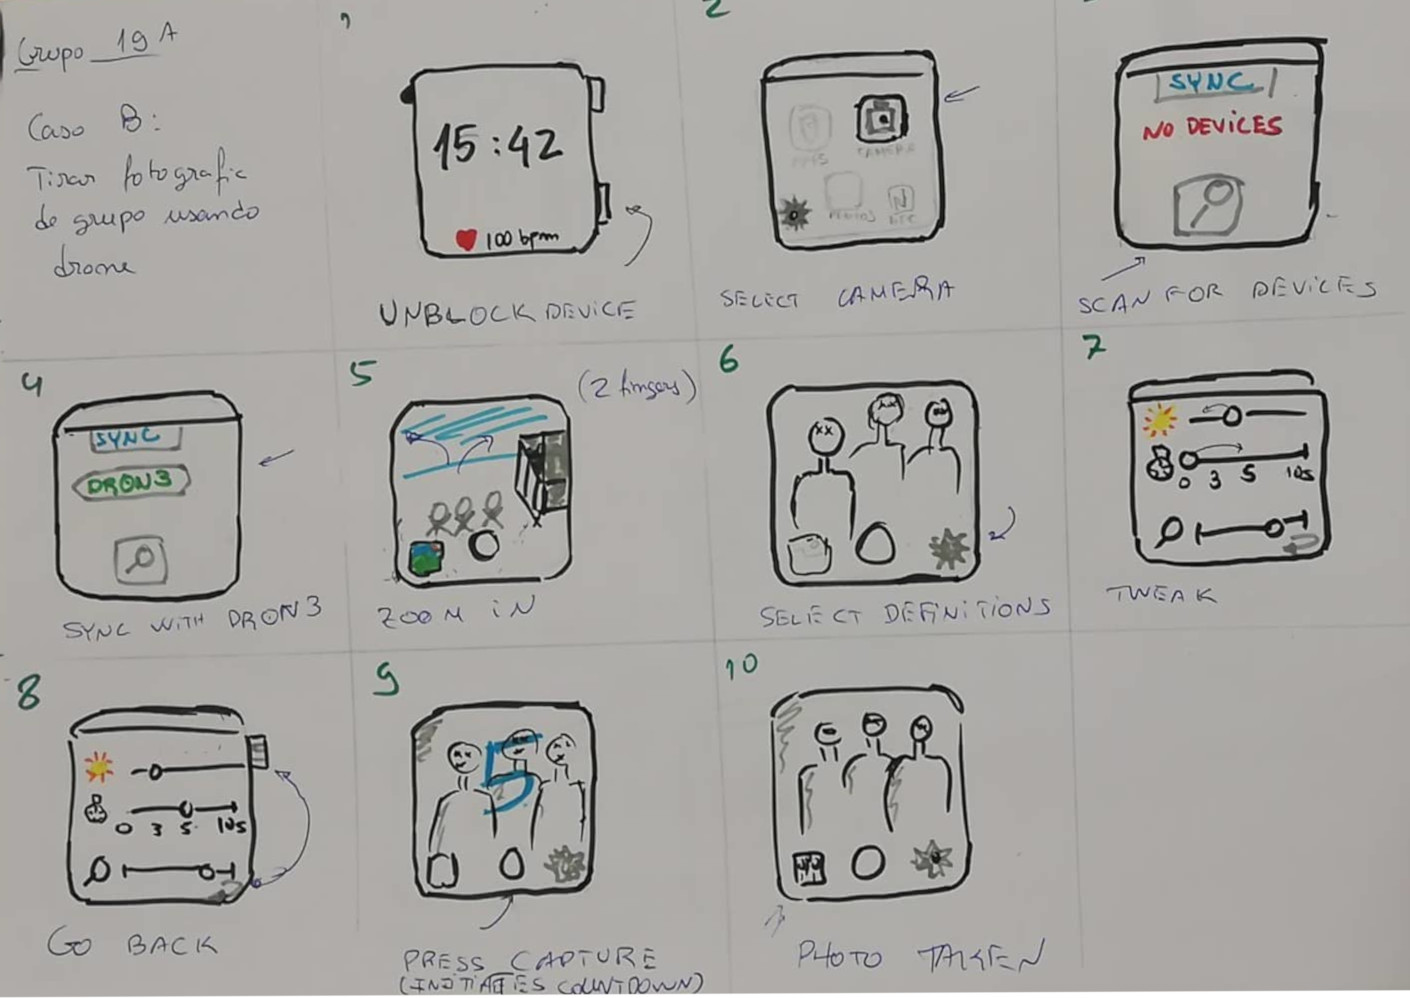 Grupo 19A
Caso B:
Tirar fotografia
de grupo usando
drone
1
15:42
100 bpm
UNBLOCK DEVICE
2
CAMERA
NFC
SELECT CAMERA
SYNC
NO DEVICES
SCAN FOR DEVICES
4
SYNC
DRON3
SYNC WITH DRON3
5
(2 fingers)
ZOOM IN
6
SELECT DEFINITIONS
7
0 3 5 10s
TWEAK
8
0 3 5 10s
GO BACK
9
5
PRESS CAPTURE
(INITIATES COUNTDOWN)
10
PHOTO TAKEN